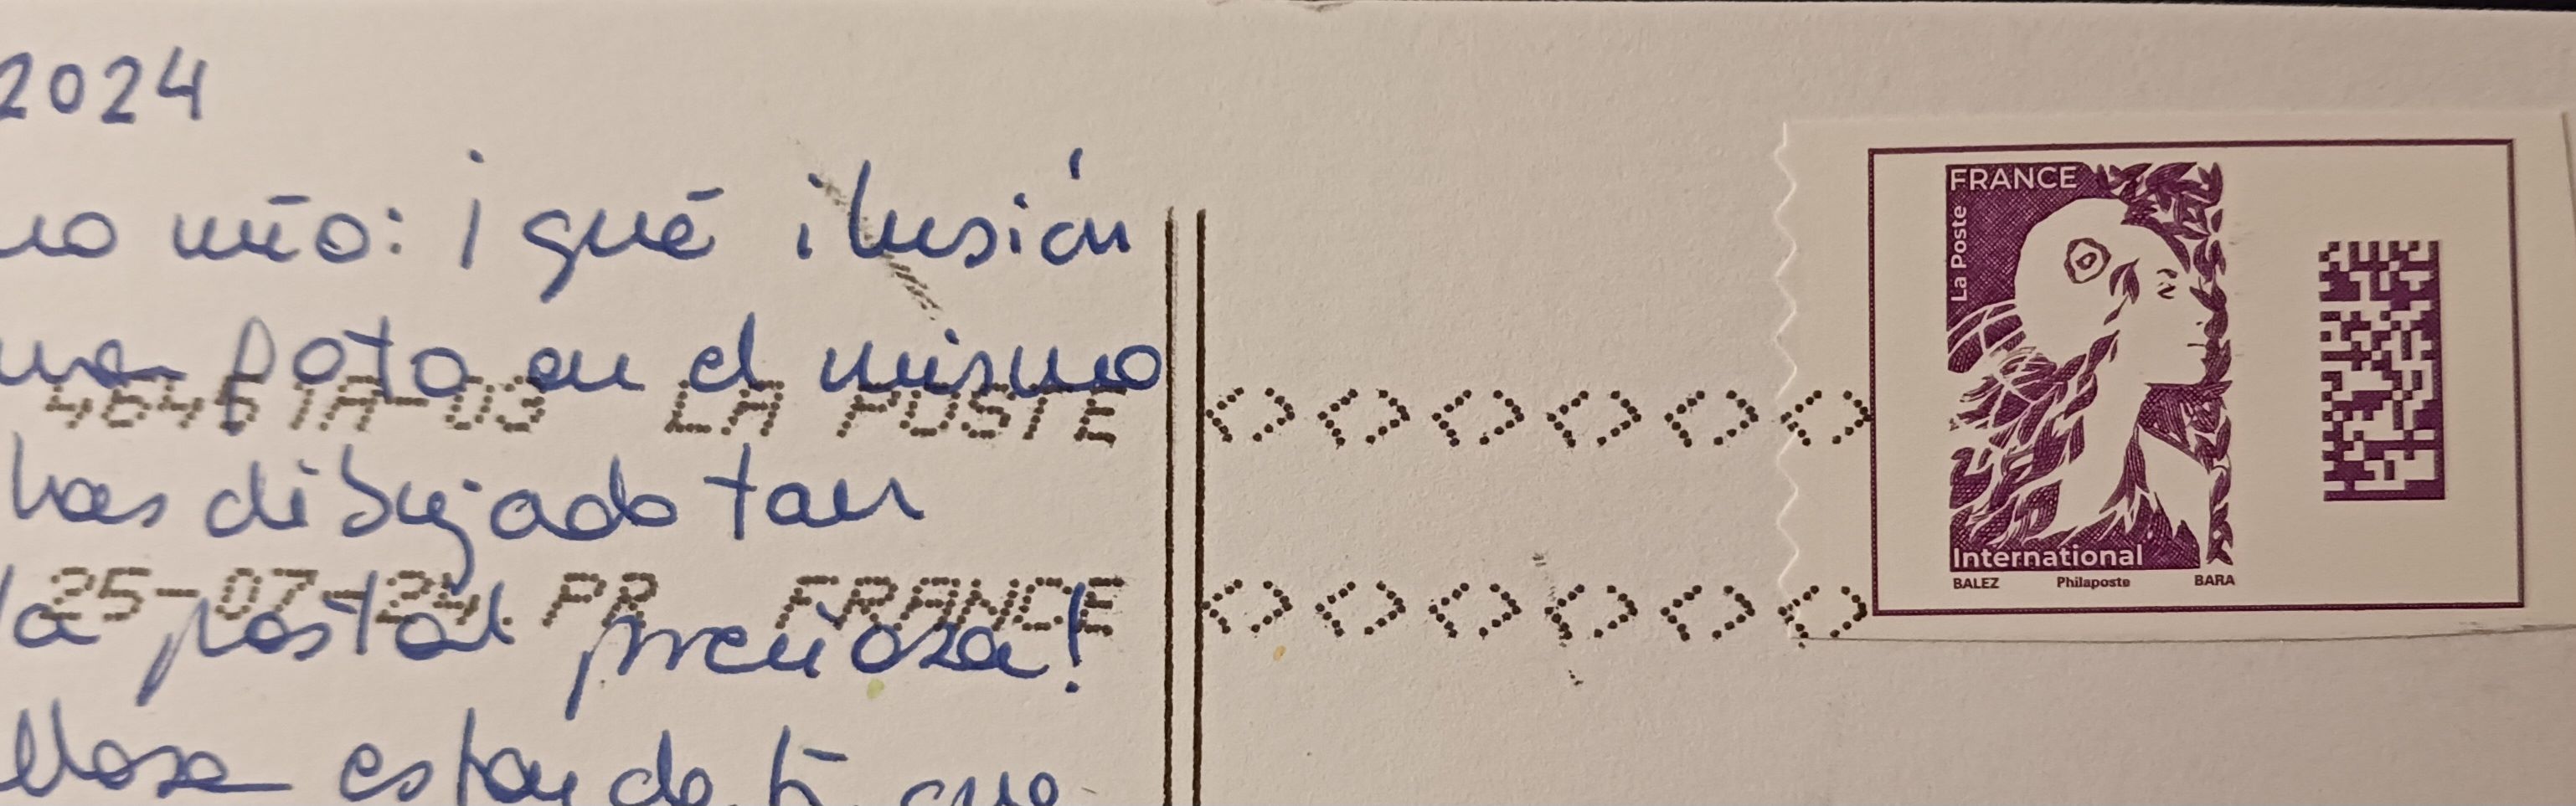 2024
mío: ¡qué ilusión
foto en el mismo
has dibujado tan
la postal preciosa!
estoy de ti que
46461A-03 LA POSTE
25-07-24. PR FRANCE
FRANCE
La Poste
International
BALEZ Philaposte BARA